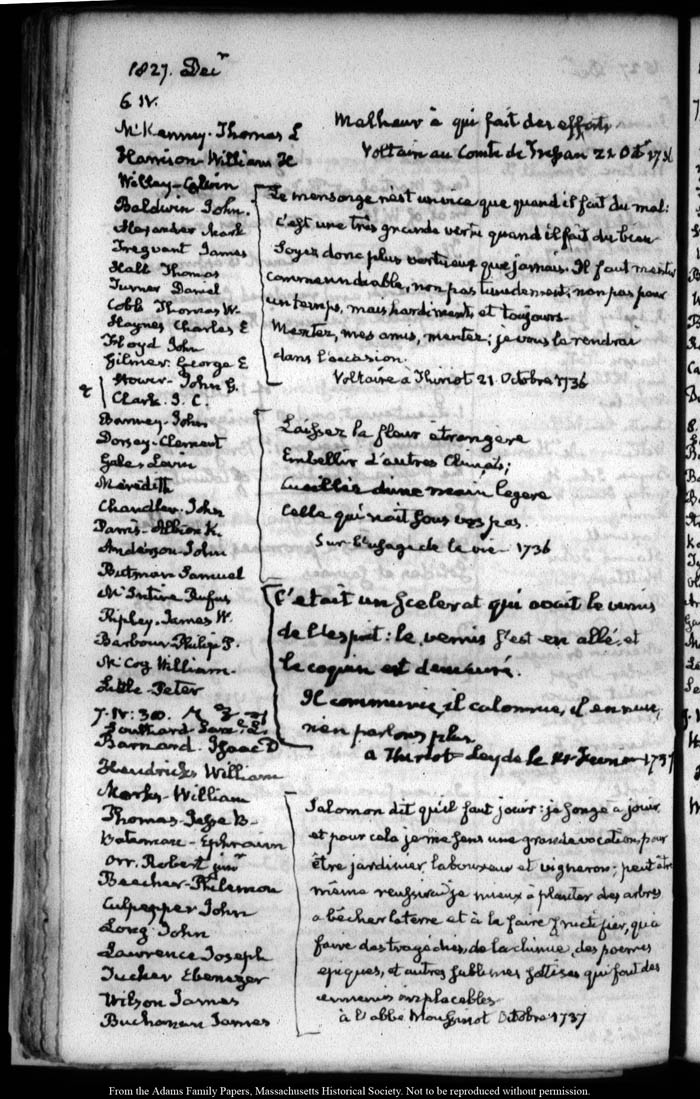 1827. Decr
6 IV.
McKenney-Thomas L
Harrison-William H
Baldwin John.
Alexander Mark
Trezvant James
Hall Thomas
Turner Daniel
Cobb Thomas W.
Haynes Charles E
Floyd John
Gilmer. George E
& Stower-John G.
Clark. I. C.
Barney-John
Dorsey-Clement
Gale-Levin
Meredith
Chandler. John
Parris-Albion K.
Anderson-John
Butman Samuel
McIntire Rufus
Ripley. James W.
Barbour-Philip P.
McCoy William-
Little-Peter
7. IV:30.
Southard Saml. L.
Barnard Isaac D
Hendricks William
Marks-William
Thomas-Jesse B-
Bateman-Ephraim
Orr. Robert junr
Beecher-Philemon
Culpepper John
Long John
Lawrence Joseph
Tucker Ebenezer
Wilson James
Buchanan James
Malheur à qui fait des efforts
Voltaire au Comte de Tressan 21 Oct 1736
Le mensonge n'est un vice que quand il fait du mal:
C'est une très grande vertu quand il fait du bien
Soyez donc plus vertueux que jamais. Il faut mentir
comme un diable, non pas timidement, non pas pour
un temps, mais hardiment et toujours.
Mentez, mes amis, mentez; je vous le rendrai
dans l'occasion.
Voltaire à Thiriot 21. Octobre 1736
Laissez la fleur étrangere
Embellir d'autres Climats;
Cueillez d'une main legere
Celle qui nait sous vos pas.
Sur l'usage de la vie- 1736
C'etait un scelerat qui avait le vernis
de l'esprit: le vernis s'est en allé, et
le coquin est demeuré.
Il communie, il calomnie, il ennuie,
n'en parlons plus
a Thiriot Leyde le Fevrier 1737
Salomon dit qu'il faut jouir: je songe a jouir
et pour cela je me sens une grande vocation pour
être jardinier laboureur et vigneron; peut être
même reussirai je mieux à planter des arbres
a bécher la terre et à la faire fructifier, qu'a
faire des tragédies, de la chimie, des poemes
epiques, et autres sublimes sottises qui font des
ennemis implacables.
à l'abbé Moussinot Octobre 1737
From the Adams Family Papers, Massachusetts Historical Society. Not to be reproduced without permission.